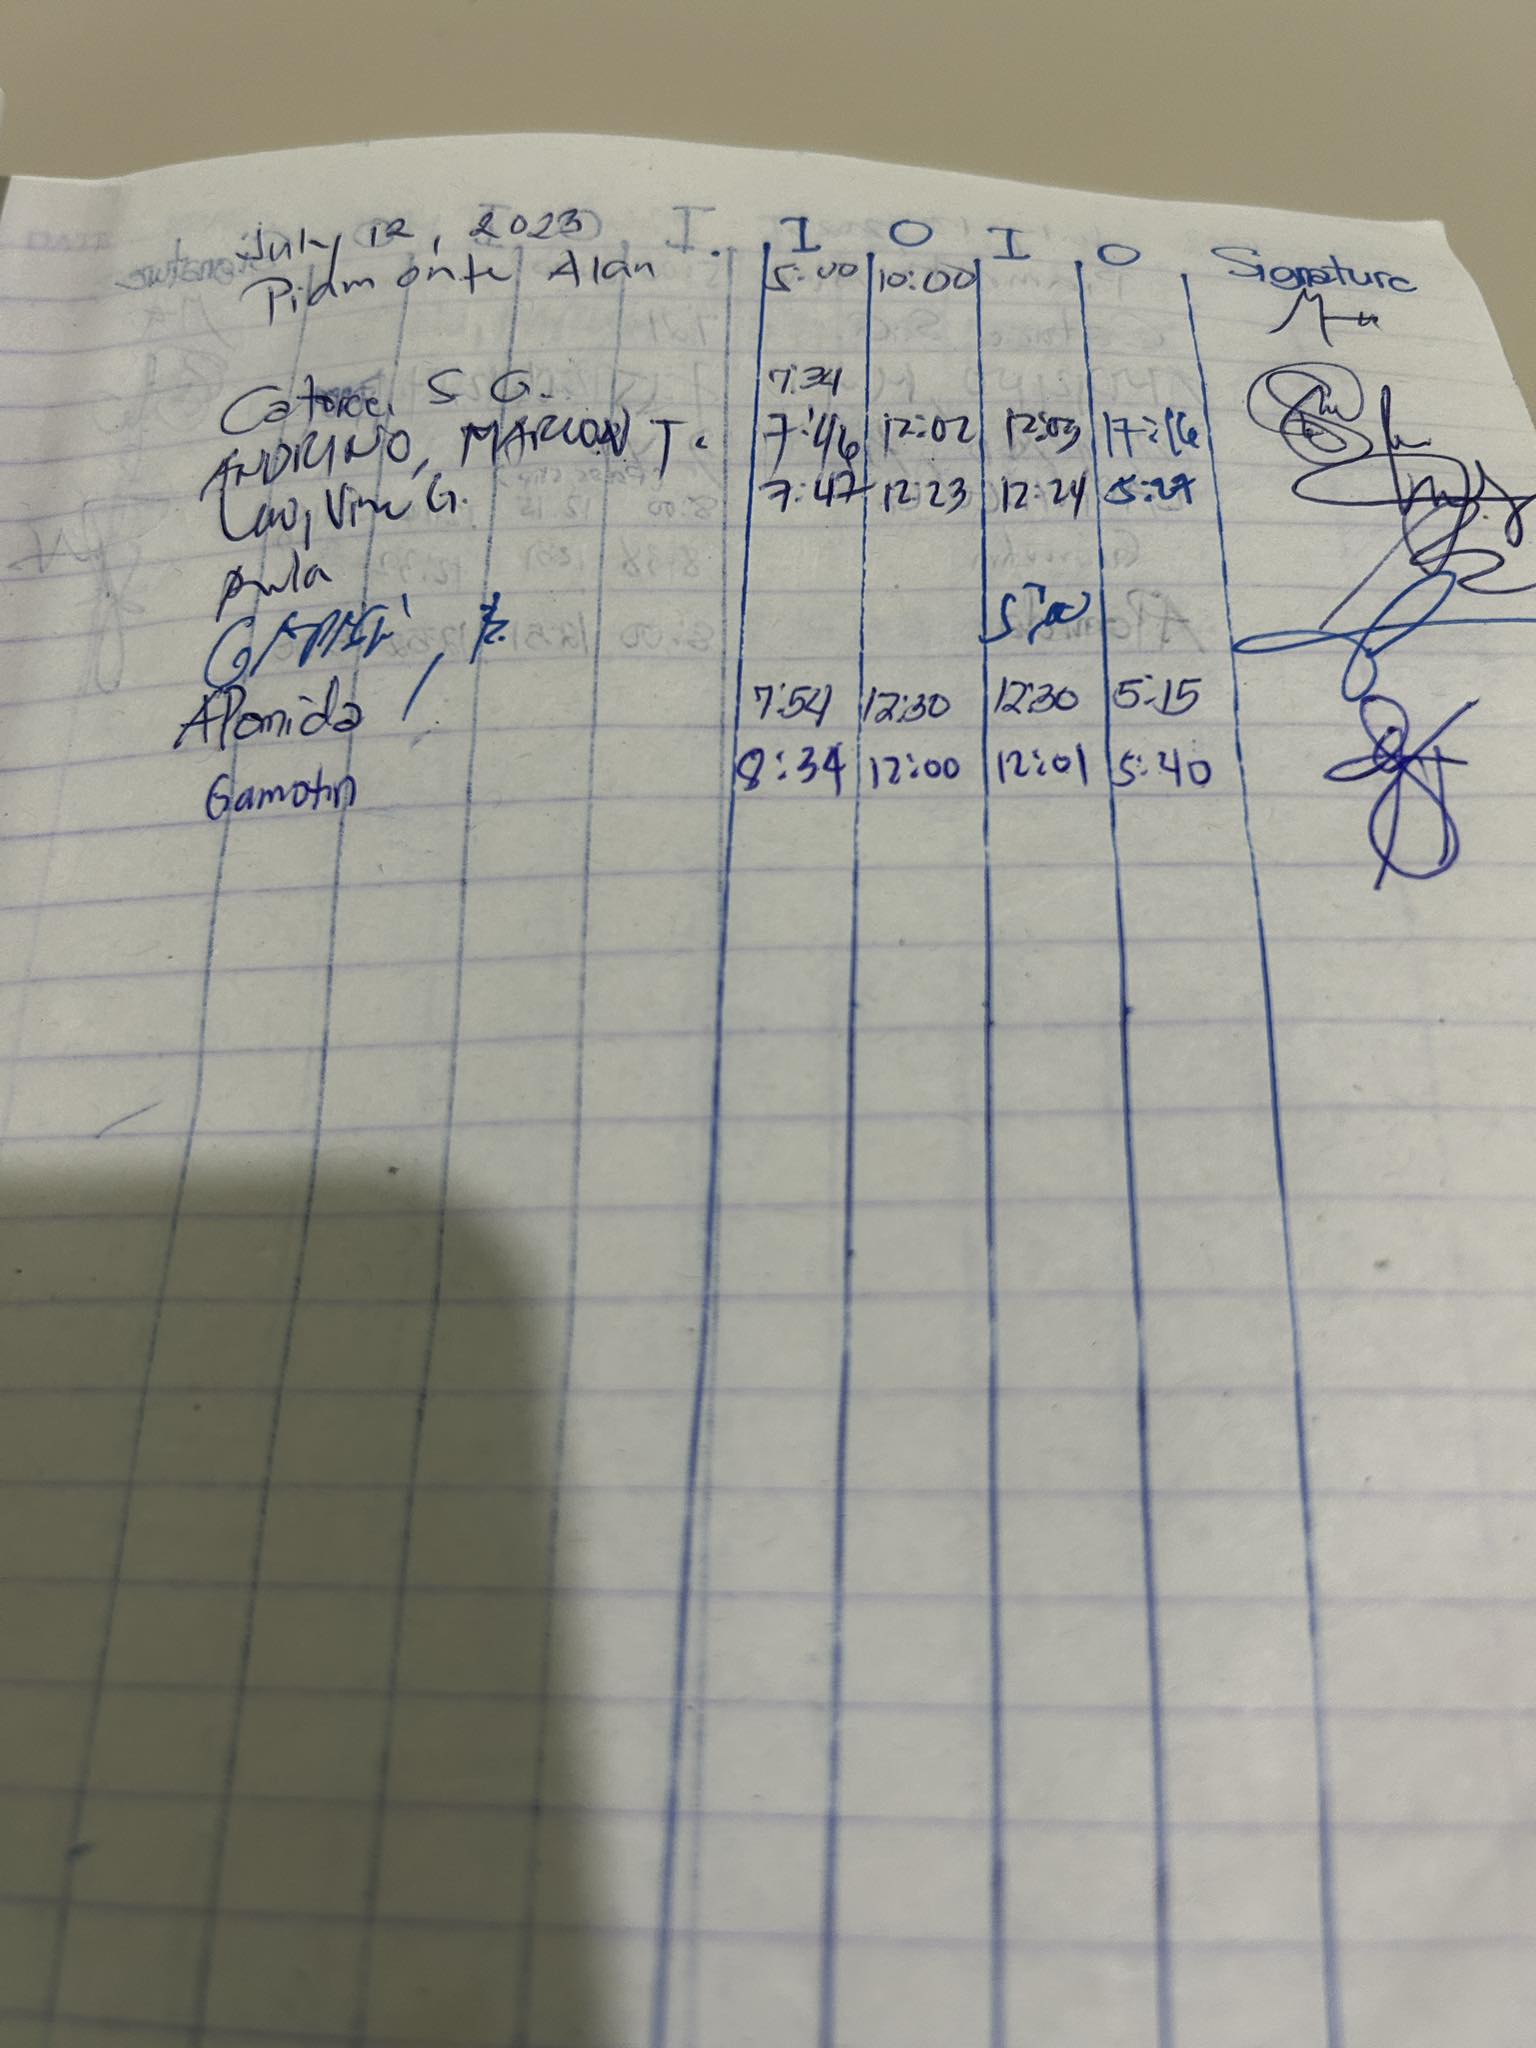 July 12, 2023 I. I O I O Signature
Piamonte Alan 5:00 10:00
Catorce, S G. 7:34
ANDRINO, MARLON T. 7:46 12:02 12:03 17:16
Lao, Vim G. 7:47 12:23 12:24 5:27
Aponida 7:54 12:30 12:30 5:15
Gamotin 8:34 12:00 12:01 5:40